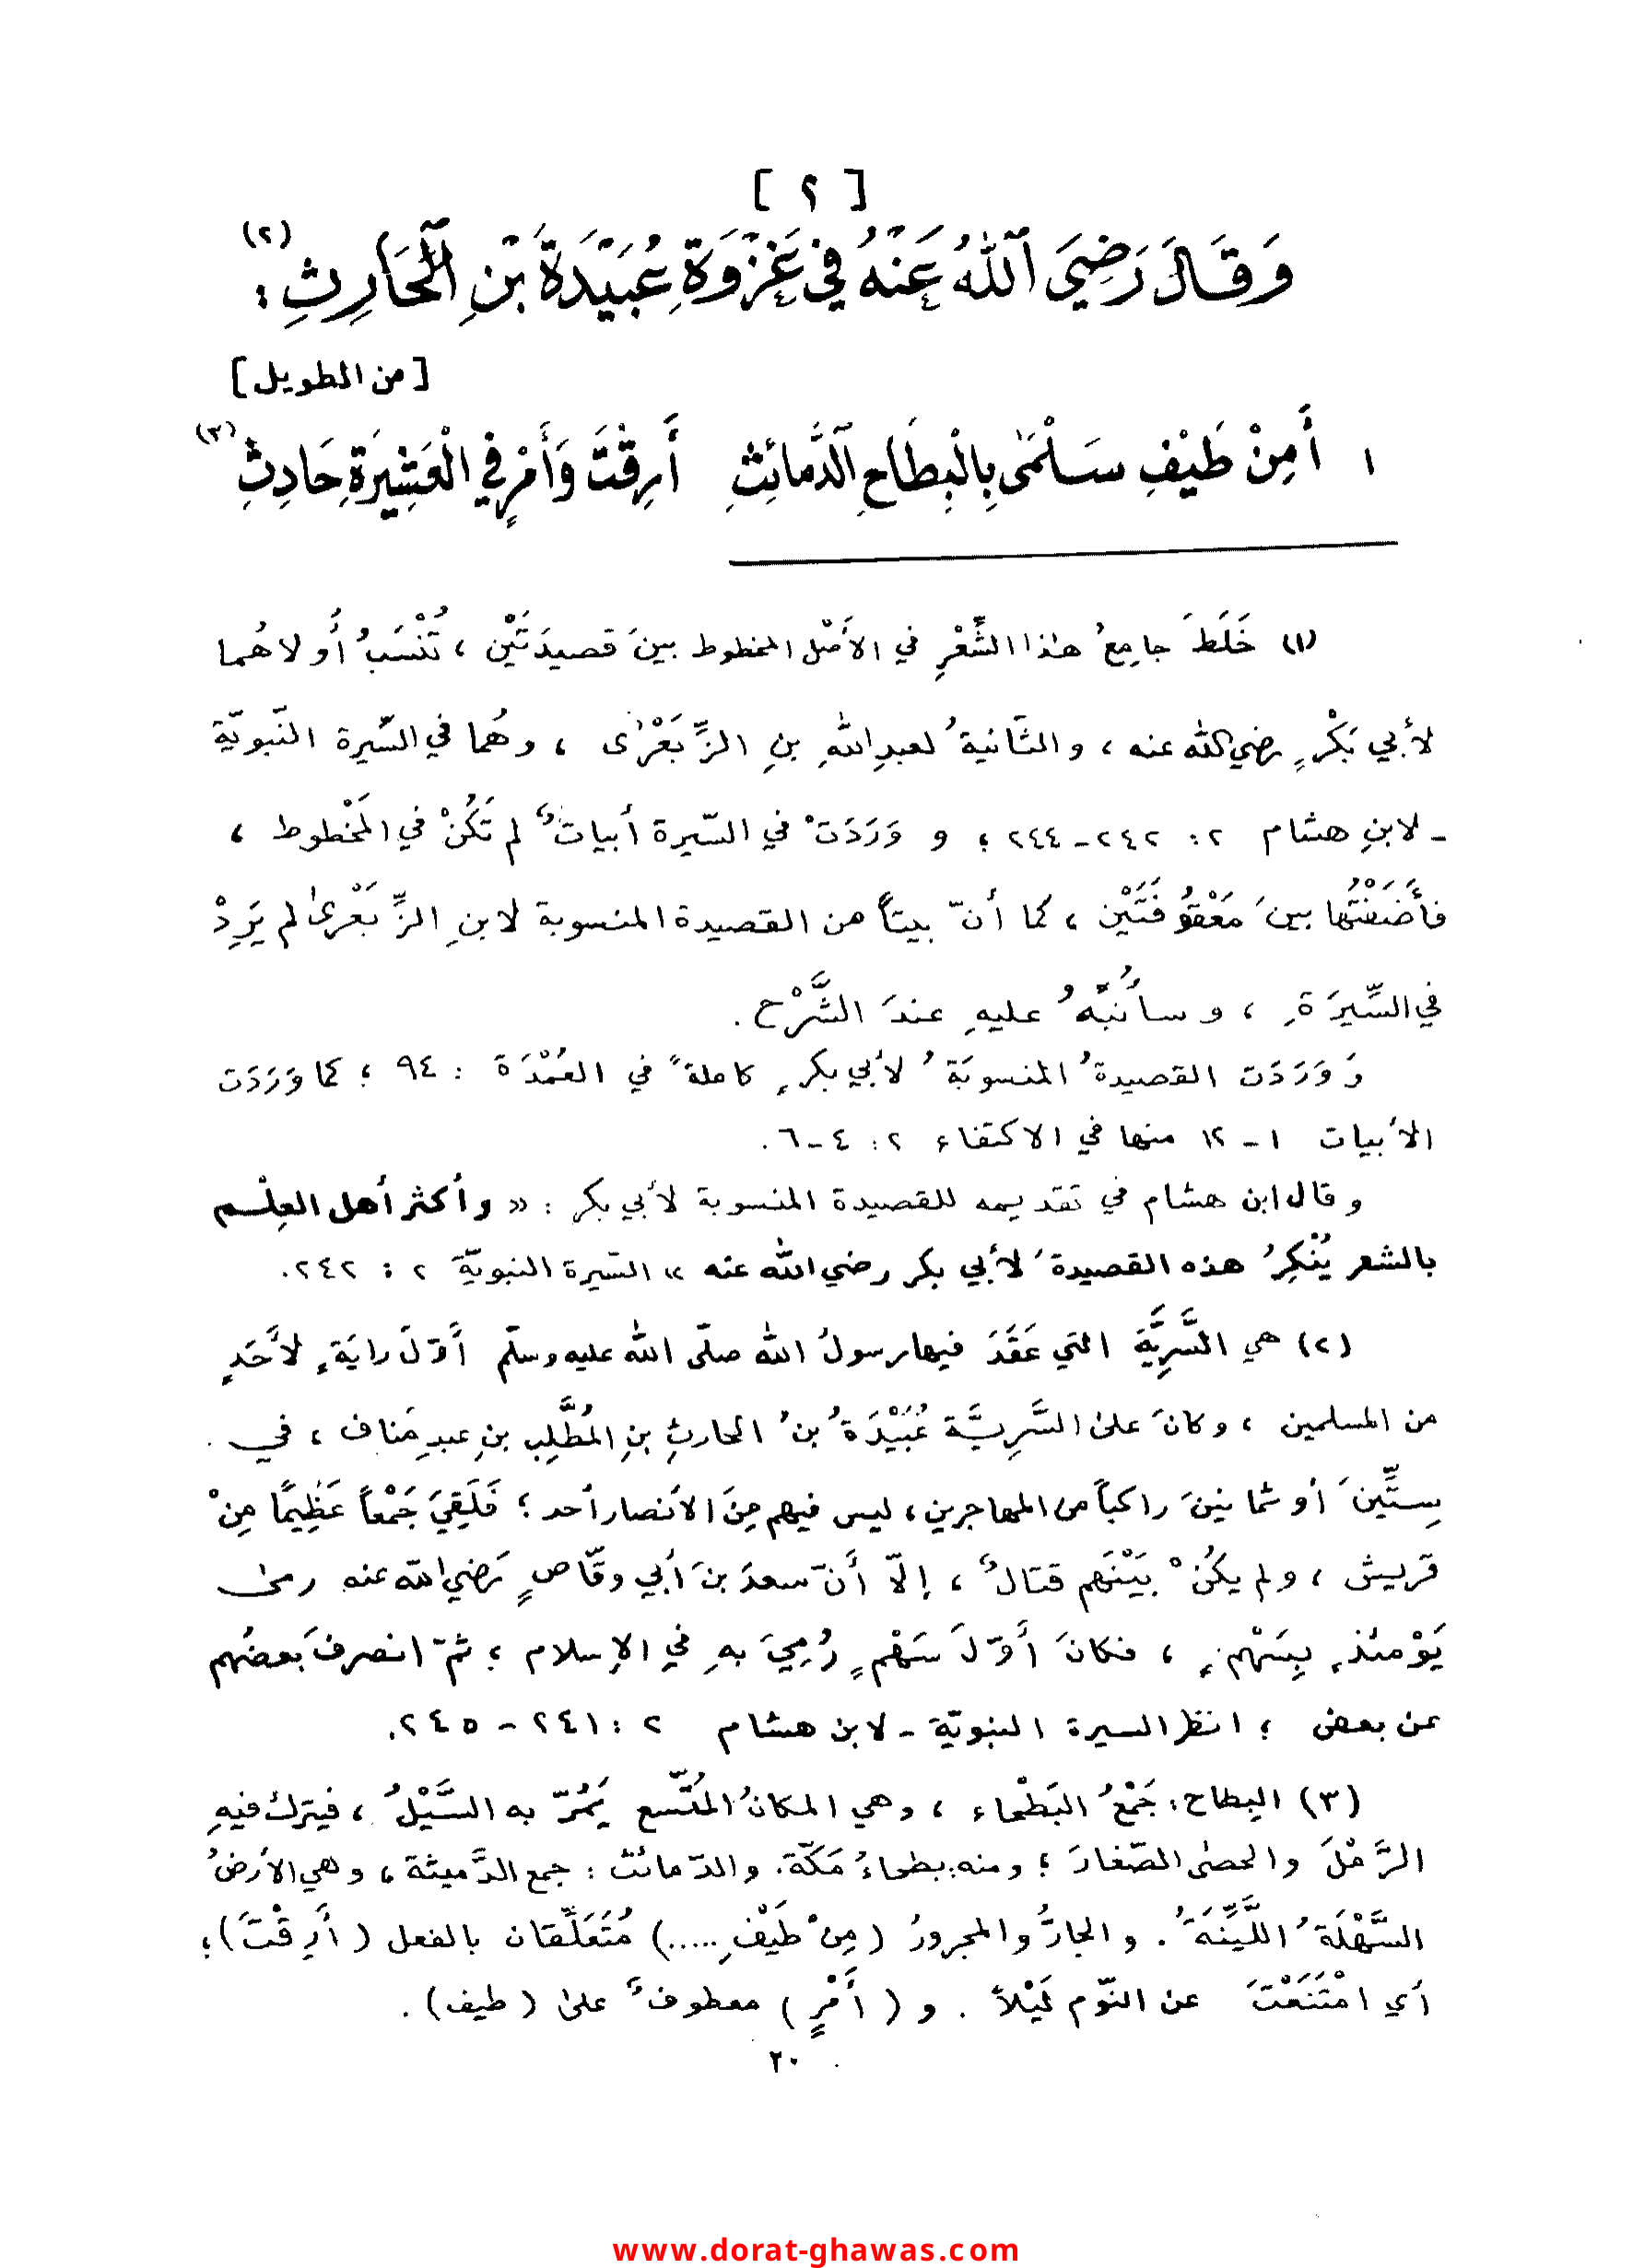 [ ٢ ]
وَقَالَ رَضِيَ ٱللهُ عَنْهُ فِي غَزْوَةِ عُبَيْدَةَ بْنِ ٱلْحَارِثِ : (٢)
[من الطويل]
١ أَمِنْ طَيْفِ سَلْمَىٰ بِالْبِطَاحِ ٱلدَّمَائِثِ أَرِقْتَ وَأَمْرٍ فِي الْعَشِيرَةِ حَادِثِ (٣)
(١) خَلَطَ جامِعُ هٰذا الشِّعْرِ في الأَصْل المخطوط بينَ قصيدَتَيْن ، تُنْسَبُ أُولاهُما
لأبي بَكْرٍ رضي الله عنه ، والثَّانيةُ لعبدِ اللهِ بنِ الزِّبَعْرٰى ، وهُما في السِّيرة النَّبويّة
- لابنِ هشام ٢ : ٢٤٢-٢٤٤ ؛ و وَرَدَتْ في السّيرة أبياتٌ لم تَكُنْ في المَخْطوط ،
فأَضَفْتُها بينَ مَعْقُوفَتَيْن ، كما أنّ بيتاً من القصيدة المنسوبة لابنِ الزِّبَعْرىٰ لم يَرِدْ
في السِّيرَةِ ، وسأُنَبِّهُ عليهِ عندَ الشَّرْح .
وَوَرَدَت القصيدةُ المنسوبَةُ لأبي بكرٍ كاملةً في العُمْدَة : ٩٤ ؛ كما وَرَدَت
الأبيات ١ - ١٢ منها في الاكتفاء ٢ : ٤-٦ .
وقال ابن هشام في تقديمه للقصيدة المنسوبة لأبي بكر : « وأكثر أهل العِلْم
بالشعر يُنْكِرُ هذه القصيدةَ لأبي بكر رضي الله عنه » السّيرة النبويّة ٢ : ٢٤٢ .
(٢) هي السَّرِيَّةَ التي عَقَدَ فيها رسولُ الله صلّى الله عليه وسلّم أَوّلَ رايَةٍ لأَحَدٍ
من المسلمين ، وكانَ علىٰ السَّرِيَّة عُبَيْدَةُ بنُ الحارثِ بنِ المُطَّلِب بنِ عبدِ مَناف ، في
سِتِّينَ أو ثمانينَ راكباً من المهاجرين ، ليس فيهم مِنَ الأنصار أحد ؛ فَلَقِيَ جَمْعاً عَظِيمًا مِنْ
قريش ، ولم يكُنْ بَيْنَهم قتالٌ ، إلّا أَنّ سعدَ بنَ أبي وقّاصٍ رَضي الله عنه رمىٰ
يَوْمئذٍ بِسَهْمٍ ، فكانَ أَوّلَ سَهْمٍ رُمِيَ بهِ في الإسلام ؛ ثمّ انصرفَ بعضُهم
عن بعض ؛ انظر السيرة النبويّة - لابن هشام ٢ : ٢٤١ - ٢٤٥ .
(٣) البِطاح : جَمْعُ البَطْحاء ، وهي المكانُ المُتَّسع يَمُرّ به السَّيْلُ ، فيترك فيهِ
الرَّمْلَ والحصىٰ الصّغارَ ؛ ومنه : بطحاءُ مَكّة . والدّمائث : جمع الدَّميثة ، وهي الأرضُ
السَّهْلَةُ اللَّيِّنَةُ . والجارُّ والمجرورُ (مِنْ طَيْفِ .....) مُتَعَلِّقان بالفعل (أَرِقْتَ) ؛
أي امْتَنَعْتَ عن النّوم لَيْلاً . و (أَمْرٍ) معطوفٌ علىٰ (طيف) .
٢٠
www.dorat-ghawas.com